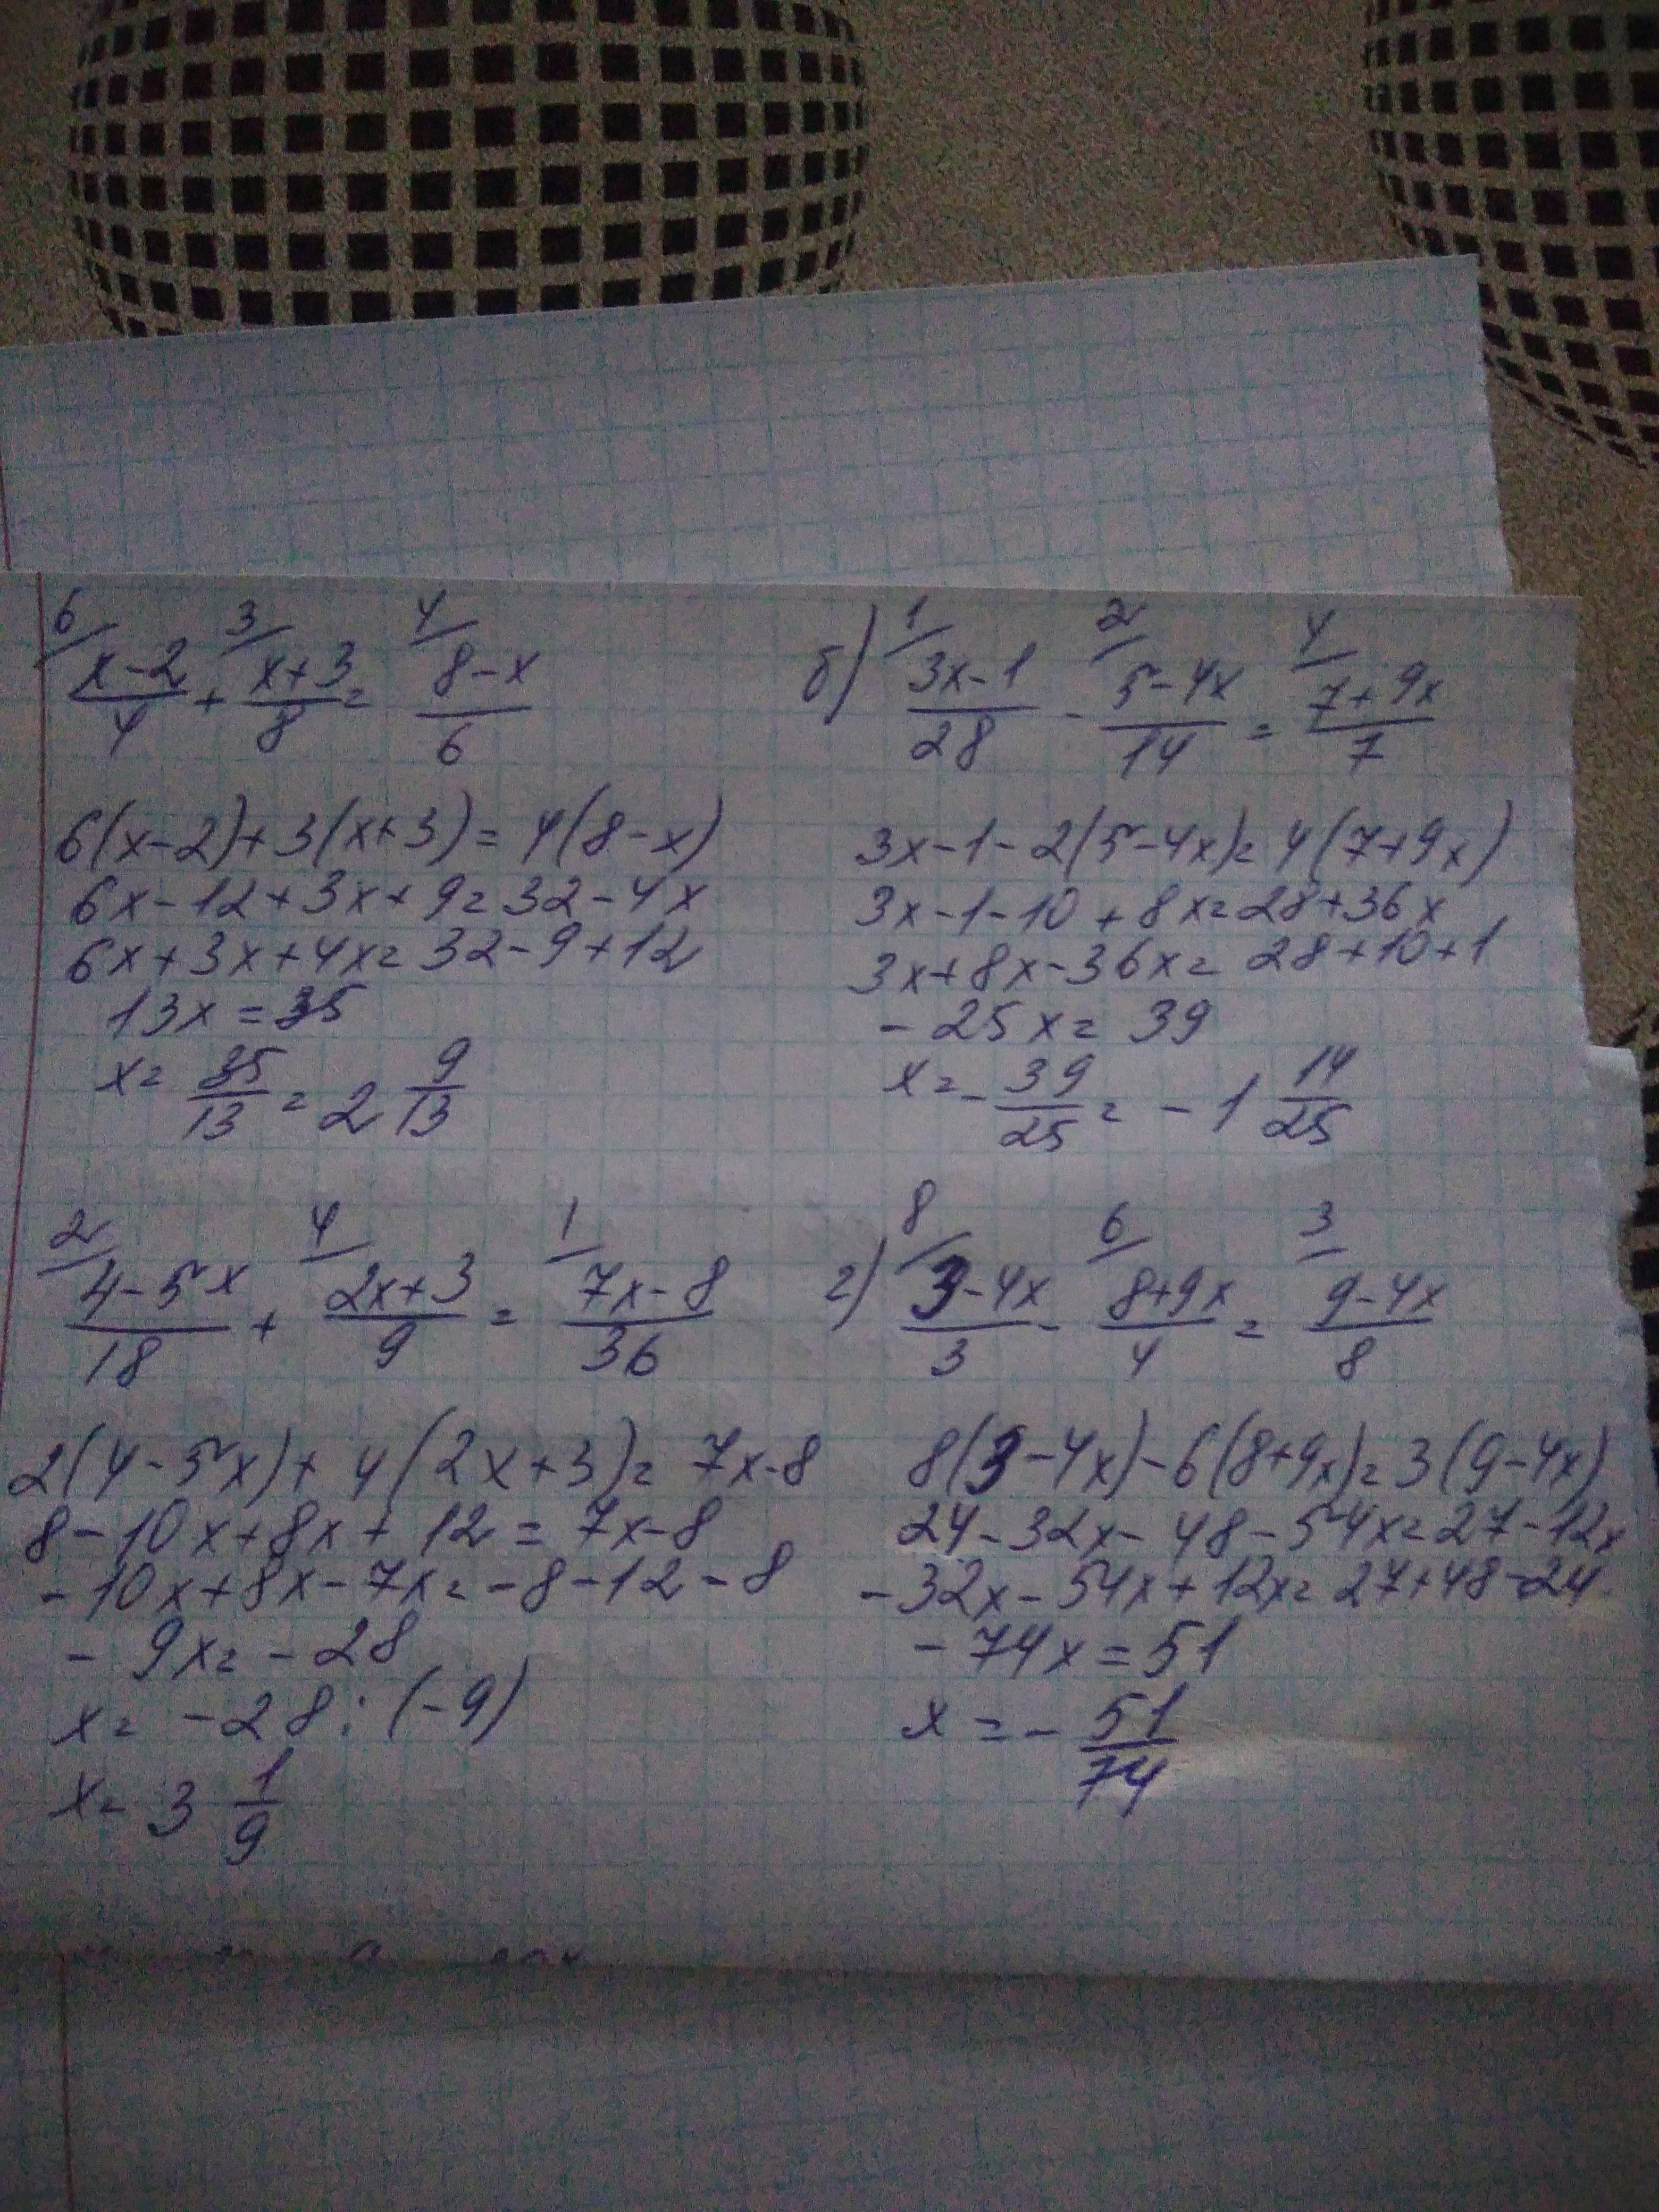 6/ (x-2)/4 + 3/ (x+3)/8 = 4/ (8-x)/6
6(x-2)+3(x+3)=4(8-x)
6x-12+3x+9=32-4x
6x+3x+4x=32-9+12
13x=35
x=35/13=2 9/13
б) 1/ (3x-1)/28 - 2/ (5-4x)/14 = 4/ (7+9x)/7
3x-1-2(5-4x)=4(7+9x)
3x-1-10+8x=28+36x
3x+8x-36x=28+10+1
-25x=39
x=-39/25=-1 14/25
2/ (4-5x)/18 + 4/ (2x+3)/9 = 1/ (7x-8)/36
2(4-5x)+4(2x+3)=7x-8
8-10x+8x+12=7x-8
-10x+8x-7x=-8-12-8
-9x=-28
x=-28:(-9)
x=3 1/9
г) 8/ (3-4x)/3 - 6/ (8+9x)/4 = 3/ (9-4x)/8
8(3-4x)-6(8+9x)=3(9-4x)
24-32x-48-54x=27-12x
-32x-54x+12x=27+48-24
-74x=51
x=-51/74